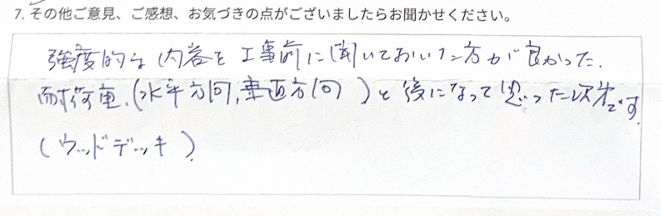 7. その他ご意見、ご感想、お気づきの点がございましたらお聞かせください。
強度的な内容を工事前に聞いておいた方が良かった.
耐荷重.(水平方向,垂直方向)と後になって思った次第です.
(ウッドデッキ)